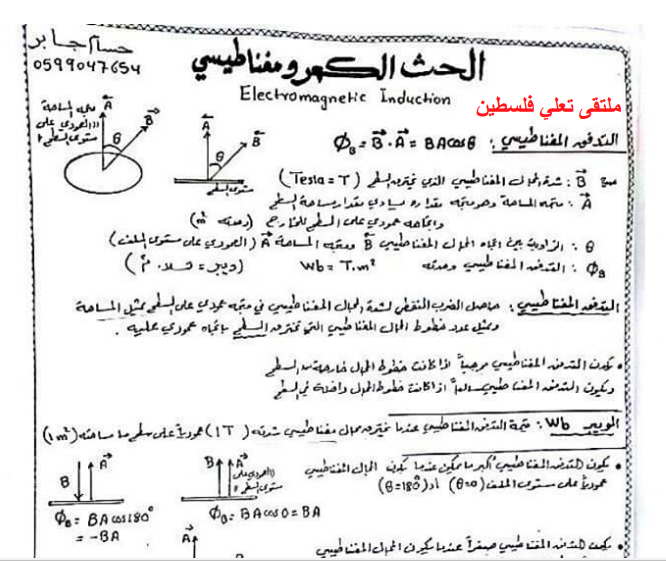 حسام جابر
0599047654
الحث الكهرومغناطيسي
Electromagnetic Induction
ملتقى تعلي فلسطين
متجه المساحة
A
((العمودي على
مستوى السطح))
B
θ
A
B
θ
مستوى السطح
التدفق المغناطيسي : ΦB = B · A = BA cosθ
B : شدة المجال المغناطيسي الذي يخترق السطح (Tesla = T)
A : متجه المساحة وهو متجه مقداره يساوي مقدار مساحة السطح
واتجاهه عمودي على السطح للخارج (وحدته m²)
θ : الزاوية بين اتجاه المجال المغناطيسي B ومتجه المساحة A (العمودي على مستوى الملف)
ΦB : التدفق المغناطيسي وحدته Wb = T.m² (ويبر = تسلا . م²)
التدفق المغناطيسي : حاصل الضرب النقطي لشدة المجال المغناطيسي في متجه عمودي على السطح يمثل المساحة
ويمثل عدد خطوط المجال المغناطيسي التي تخترق السطح باتجاه عمودي عليه .
• يكون التدفق المغناطيسي موجباً اذا كانت خطوط المجال خارجة من السطح
ويكون التدفق المغناطيسي سالباً اذا كانت خطوط المجال داخلة في السطح
الويبر Wb : قيمة التدفق المغناطيسي عندما يخترق مجال مغناطيسي شدته (1T) عمودياً على سطح ما مساحته (1m²)
• يكون التدفق المغناطيسي أكبر ما يمكن عندما يكون المجال المغناطيسي
عمودياً على مستوى الملف (θ=0) أو (θ=180°)
B A
((العمودي على
مستوى السطح))
ΦB = BA cos0 = BA
B A
ΦB = BA cos180°
= -BA
A
• يكون التدفق المغناطيسي صفراً عندما يكون المجال المغناطيسي